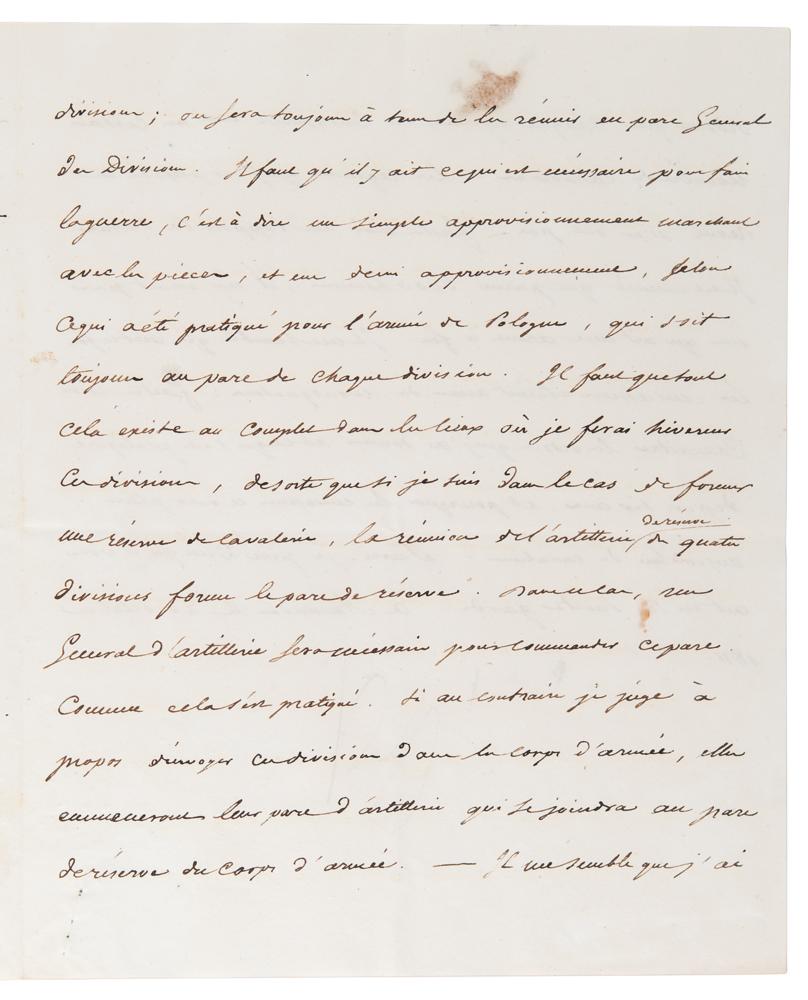 divisions ; on sera toujours à tems de les réunir en parc General
des Divisions. Il faut qu'il y ait ce qui est nécessaire pour faire
la guerre, c'est à dire un simple approvisionnement marchant
avec les pièces, et un demi approvisionnement, selon
ce qui a été pratiqué pour l'armée de Pologne, qui doit
toujours au parc de chaque division. Il faut que tout
cela existe au complet dans les lieux où je ferai hiverner
ces divisions, de sorte que si je suis dans le cas de former
une réserve de cavalerie, la réunion de l'artillerie de réserve de quatre
divisions forme le parc de réserve. Dans ce cas, un
General d'artillerie sera nécessaire pour commander ce parc.
Comme cela s'est pratiqué. Si au contraire je juge à
propos d'envoyer ces divisions dans les corps d'armée, elles
emmeneront leur parc d'artillerie qui se joindra au parc
de réserve du corps d'armée. — Il me semble que j'ai